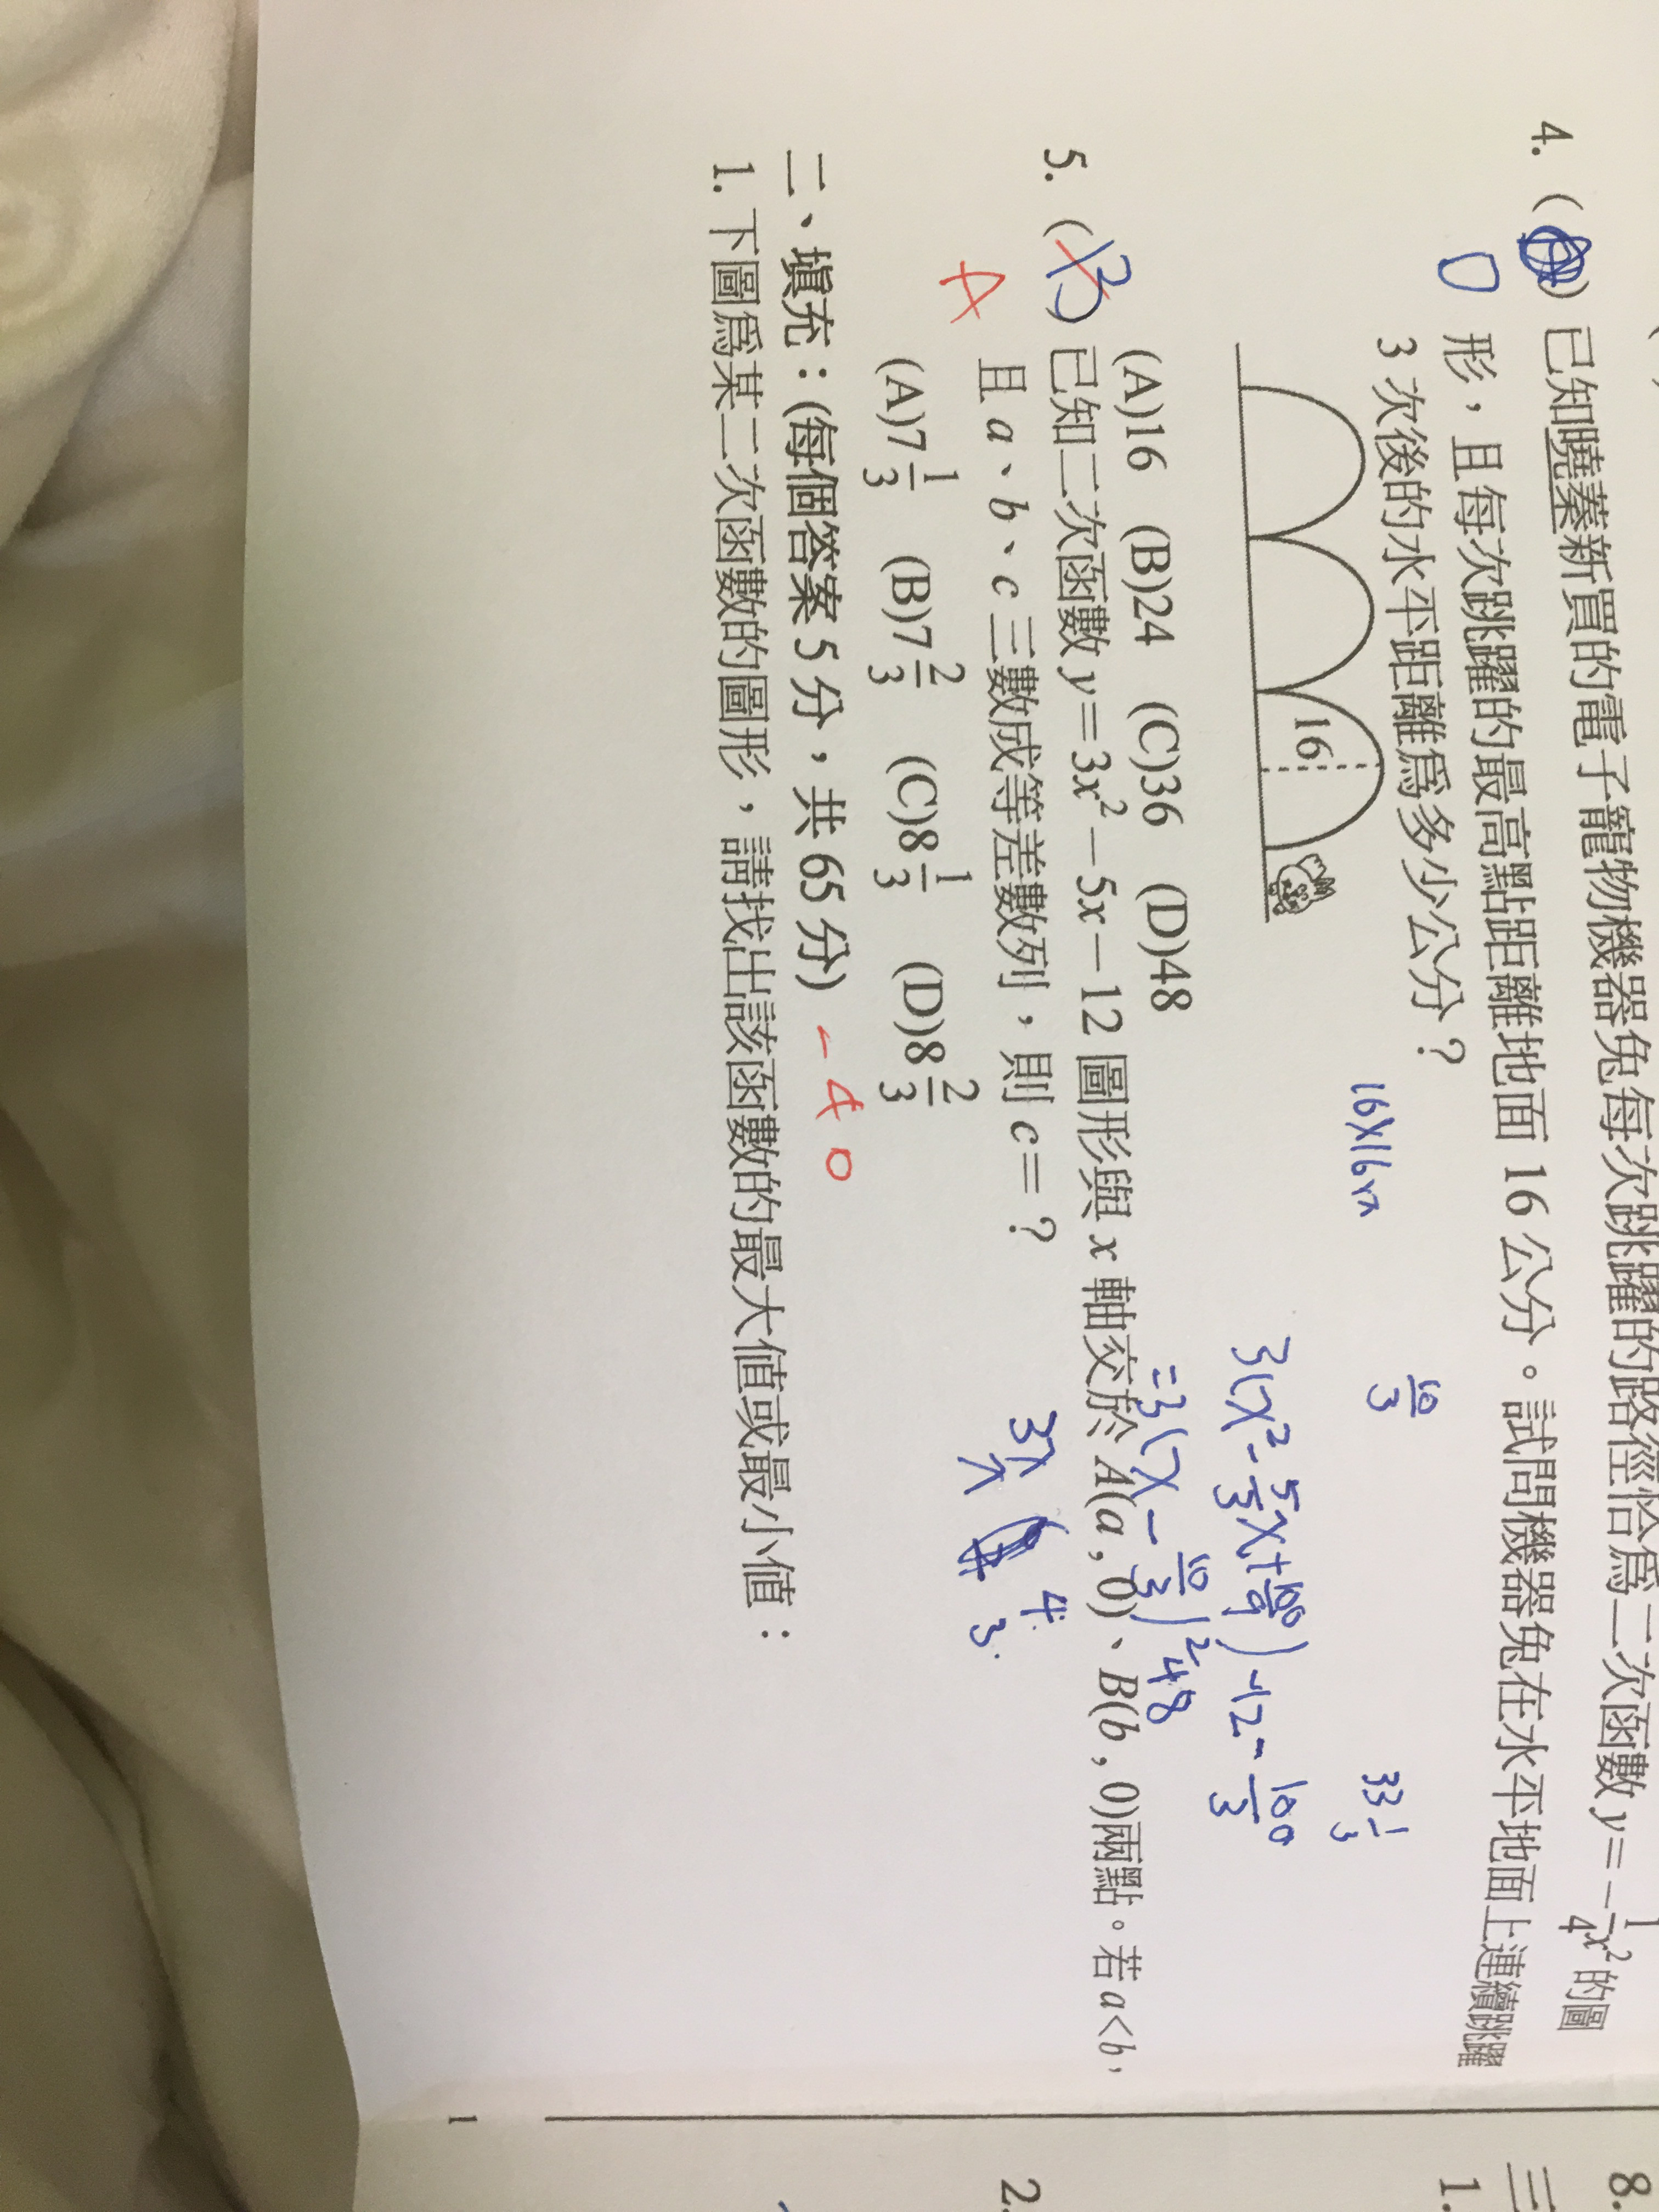 4. ( ) 已知曉蓁新買的電子寵物機器兔每次跳躍的路徑恰為二次函數 y=-1/4x²的圖
D 形，且每次跳躍的最高點距離地面 16 公分。試問機器兔在水平地面上連續跳躍
3 次後的水平距離為多少公分？
16
16×16×
10/3
33 1/3
3(x²-5/3x+100/9)-12-100/3
=3(x-10/3)² 48
(A)16 (B)24 (C)36 (D)48
5. (B) 已知二次函數 y=3x²-5x-12 圖形與 x 軸交於 A(a,0)、B(b,0)兩點。若 a<b，
A 且 a、b、c 三數成等差數列，則 c=？
3x 4
x 3
(A)7 1/3 (B)7 2/3 (C)8 1/3 (D)8 2/3
二、填充：(每個答案 5 分，共 65 分) -40
1. 下圖為某二次函數的圖形，請找出該函數的最大值或最小值：
1
8.
三
1.
2.